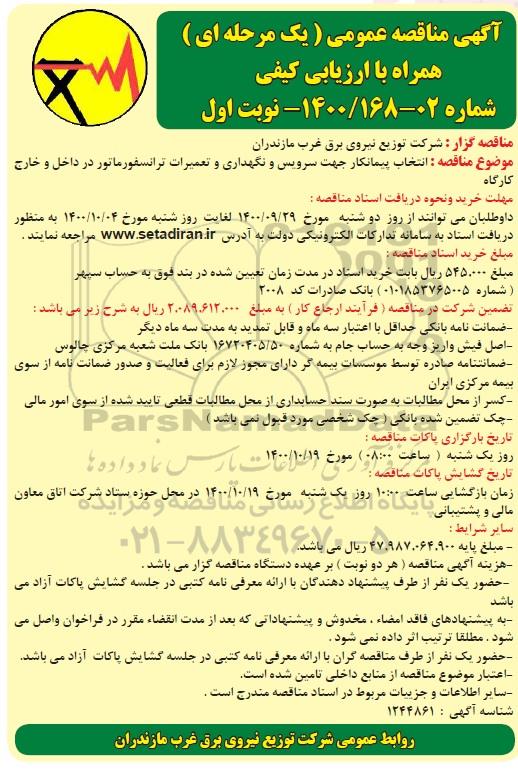 آگهی مناقصه عمومی ( یک مرحله ای )
همراه با ارزیابی کیفی
شماره ۰۲-۱۴۰۰/۱۶۸- نوبت اول
مناقصه گزار : شرکت توزیع نیروی برق غرب مازندران
موضوع مناقصه : انتخاب پیمانکار جهت سرویس و نگهداری و تعمیرات ترانسفورماتور در داخل و خارج
کارگاه
مهلت خرید ونحوه دریافت اسناد مناقصه :
داوطلبان می توانند از روز دو شنبه مورخ ۱۴۰۰/۰۹/۲۹ لغایت روز شنبه مورخ ۱۴۰۰/۱۰/۰۴ به منظور
دریافت اسناد به سامانه تدارکات الکترونیکی دولت به آدرس www.setadiran.ir مراجعه نمایند .
مبلغ خرید اسناد مناقصه :
مبلغ ۵۴۵.۰۰۰ ریال بابت خرید اسناد در مدت زمان تعیین شده در بند فوق به حساب سپهر
( شماره ۰۱۰۱۸۵۳۷۶۵۰۰۵ ) بانک صادرات کد ۲۰۰۸
تضمین شرکت در مناقصه ( فرآیند ارجاع کار ) به مبلغ ۲.۰۸۹.۶۱۲.۰۰۰ ریال به شرح زیر می باشد :
-ضمانت نامه بانکی حداقل با اعتبار سه ماه و قابل تمدید به مدت سه ماه دیگر
-اصل فیش واریز وجه به حساب جام به شماره ۱۶۷۲۰۴۰۵/۵۰ بانک ملت شعبه مرکزی چالوس
-ضمانتنامه صادره توسط موسسات بیمه گر دارای مجوز لازم برای فعالیت و صدور ضمانت نامه از سوی
بیمه مرکزی ایران
-کسر از محل مطالبات به صورت سند حسابداری از محل مطالبات قطعی تایید شده از سوی امور مالی
-چک تضمین شده بانکی ( چک شخصی مورد قبول نمی باشد )
تاریخ بارگزاری پاکات مناقصه :
روز یک شنبه ( ساعت ۰۸:۰۰ ) مورخ ۱۴۰۰/۱۰/۱۹
تاریخ گشایش پاکات مناقصه :
زمان بازگشایی ساعت ۱۰:۰۰ روز یک شنبه مورخ ۱۴۰۰/۱۰/۱۹ در محل حوزه ستاد شرکت اتاق معاون
مالی و پشتیبانی
سایر شرایط :
- مبلغ پایه ۴۷.۹۸۷.۰۶۴.۹۰۰ ریال می باشد.
-هزینه آگهی مناقصه ( هر دو نوبت ) بر عهده دستگاه مناقصه گزار می باشد .
-حضور یک نفر از طرف پیشنهاد دهندگان با ارائه معرفی نامه کتبی در جلسه گشایش پاکات آزاد می
باشد
-به پیشنهادهای فاقد امضاء ، مخدوش و پیشنهاداتی که بعد از مدت انقضاء مقرر در فراخوان واصل می
شود . مطلقا ترتیب اثر داده نمی شود .
-حضور یک نفر از طرف مناقصه گران با ارائه معرفی نامه کتبی در جلسه گشایش پاکات آزاد می باشد.
-اعتبار موضوع مناقصه از منابع داخلی تامین شده است.
-سایر اطلاعات و جزییات مربوط در اسناد مناقصه مندرج است .
شناسه آگهی : ۱۲۴۴۸۶۱
روابط عمومی شرکت توزیع نیروی برق غرب مازندران
ParsNamadData
پایگاه اطلاع رسانی مناقصه و مزایده
۰۲۱-۸۸۳۴۹۶۷۰-۵